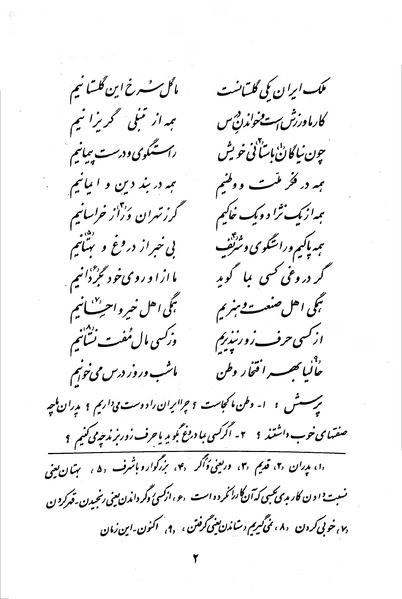 ملک ایران یکی گلستانست ما گل سرخ این گلستانیم
کار ما ورزش است و خواندن درس همه از تنبلی گریزانیم
چون نیاکان۱ باستانی۲ خویش راستگوی و درست پیمانیم
همه در فکر ملت و وطنیم همه در بند دین و ایمانیم
همه از یک نژاد و یک خاکیم گر ز تهران ور۳ از خراسانیم
همه پاکیم و راستگوی و شریف۴ بی خبر از دروغ و بهتانیم۵
گر دروغی کسی بما گوید ما از او روی خود بگردانیم۶
همگی اهل صنعت و هنریم همگی اهل خیر و احسانیم۷
از کسی حرف زور نپذیریم وز کسی مال مفت نستانیم۸
حالیا۹ بهر افتخار وطن ما شب و روز درس می خوانیم
پرسش : ۱- وطن ما کجاست ؟ چرا ایران را دوست می داریم ؟ پدران ما چه
صفتهای خوب داشتند ؟ ۲- اگر کسی بما دروغ بگوید یا حرف زور بزند چه می کنیم ؟
۱، پدران ۲، قدیم ۳، ور یعنی و اگر ۴، بزرگوار و باشرف ۵، بهتان یعنی
نسبت دادن کار بدی بکسی که آن کار را نکرده است ۶، از کسی رو گرداندن یعنی رنجیدن - قهر کردن
۷، خوبی کردن ۸، نمی گیریم ، ستاندن یعنی گرفتن ۹، اکنون - این زمان
۲